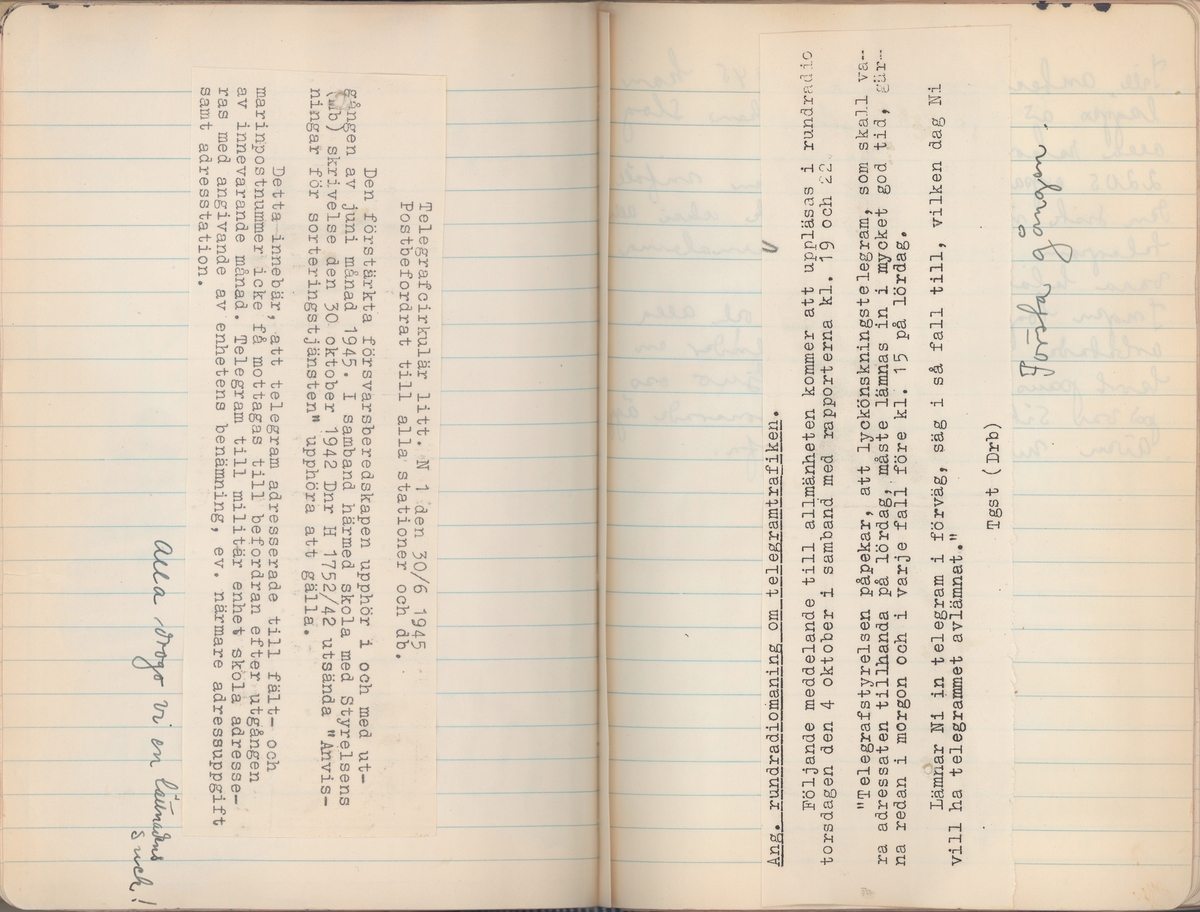 Telegrafcirkulär litt. N 1 den 30/6 1945
Postbefordrat till alla stationer och db.
Den förstärkta försvarsberedskapen upphör i och med ut-
gången av juni månad 1945. I samband härmed skola med Styrelsens
(Mb) skrivelse den 30 oktober 1942 Dnr H 1752/42 utsända "Anvis-
ningar för sorteringstjänsten" upphöra att gälla.
Detta innebär, att telegram adresserade till fält- och
marinpostnummer icke få mottagas till befordran efter utgången
av innevarande månad. Telegram till militär enhet skola adresse-
ras med angivande av enhetens benämning, ev. närmare adressuppgift
samt adresstation.
Alla drogo vi en lättnadens
suck!
Ang. rundradiomaning om telegramtrafiken.
Följande meddelande till allmänheten kommer att uppläsas i rundradio
torsdagen den 4 oktober i samband med rapporterna kl. 19 och 22.
"Telegrafstyrelsen påpekar, att lyckönskningstelegram, som skall va-
ra adressaten tillhanda på lördag, måste lämnas in i mycket god tid, gär-
na redan i morgon och i varje fall före kl. 15 på lördag.
Lämnar Ni in telegram i förväg, säg i så fall till, vilken dag Ni
vill ha telegrammet avlämnat."
Tgst (Drb)
Första gången.